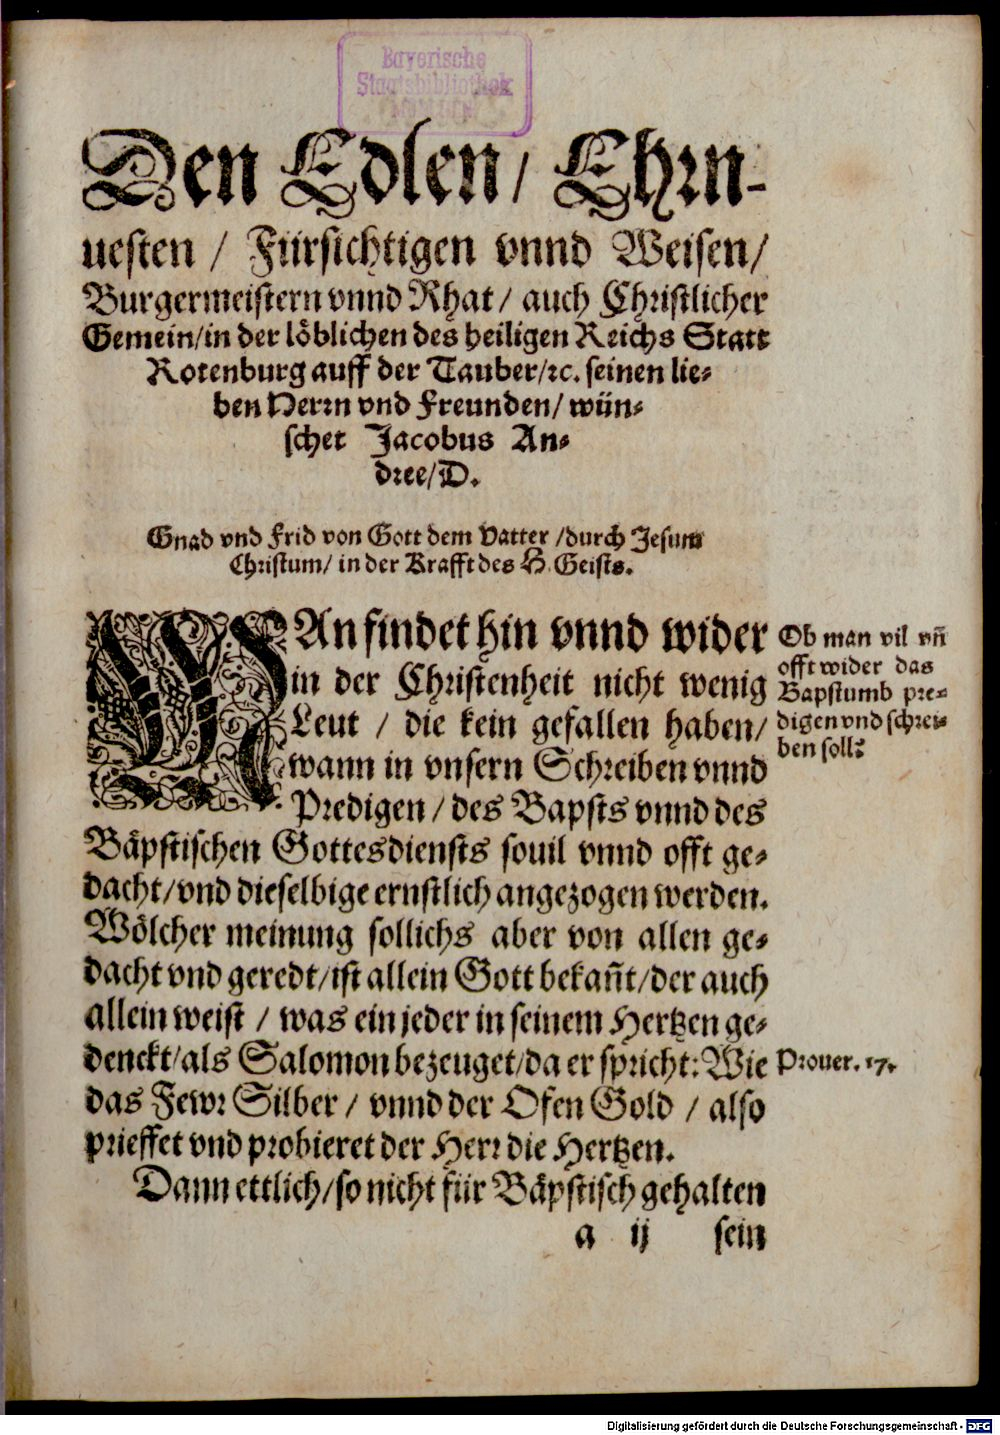 Bayerische
Staatsbibliothek
MÜNCHEN
Den Edlen / Ehrn-
uesten / Fürsichtigen vnnd Weisen /
Burgermeistern vnnd Rhat / auch Christlicher
Gemein / in der löblichen des heiligen Reichs Statt
Rotenburg auff der Tauber / ꝛc. seinen lie-
ben Herrn vnd Freunden / wün-
schet Jacobus An-
dree / D.
Gnad vnd Frid von Gott dem Vatter / durch Jesum
Christum / in der Krafft des H. Geists.
MAn findet hin vnnd wider
in der Christenheit nicht wenig
Leut / die kein gefallen haben /
wann in vnsern Schreiben vnnd
Predigen / des Bapsts vnnd des
Bäpstischen Gottesdiensts souil vnnd offt ge-
dacht / vnd dieselbige ernstlich angezogen werden.
Wölcher meinung sollichs aber von allen ge-
dacht vnd geredt / ist allein Gott bekañt / der auch
allein weist / was ein jeder in seinem Hertzen ge-
denckt / als Salomon bezeuget / da er spricht: Wie
das Fewr Silber / vnnd der Ofen Gold / also
prieffet vnd probieret der Herr die Hertzen.
Dann ettlich / so nicht für Bäpstisch gehalten
a ij sein
Ob man vil vñ
offt wider das
Bapstumb pre-
digen vnd schrei-
ben soll?
Prouer. 17.
Digitalisierung gefördert durch die Deutsche Forschungsgemeinschaft - DFG